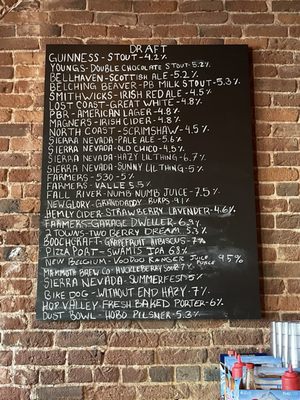 DRAFT
GUINNESS - STOUT - 4.2%
YOUNGS - DOUBLE CHOCOLATE STOUT - 5.2%
BELLHAVEN - SCOTTISH ALE - 5.2%
BELCHING BEAVER - PB MILK STOUT - 5.3%
SMITHWICKS - IRISH RED ALE - 4.5%
LOST COAST - GREAT WHITE - 4.8%
PBR - AMERICAN LAGER - 4.8%
MAGNERS - IRISH CIDER - 4.8%
NORTH COAST - SCRIMSHAW - 4.5%
SIERRA NEVADA - PALE ALE - 5.6%
SIERRA NEVADA - OLD CHICO - 4.5%
SIERRA NEVADA - HAZY LIL THING - 6.7%
SIERRA NEVADA - SUNNY LIL THING - 5%
FARMERS - 530 - 5%
FARMERS - VALLE 5.5%
FALL RIVER - NUMB NUMB JUICE - 7.5%
NEW GLORY - GRANDDADDY BURPS - 9.1%
HEMLY CIDER STRAWBERRY LAVENDER - 4.6%
FARMERS - GARAGE DWELLER - 6.9%
2 TOWNS - TWO BERRY DREAM 5.3%
BOOCHCRAFT - GRAPEFRUIT HIBISCUS - 7%
PIZZA PORT - SWAMIS IPA 6.8%
NEW BELGIUM - VOODOO RANGER JUICE FORCE 9.5%
MAMMOTH BREW CO - HUCKLEBERRY 7%
SIERRA NEVADA - SUMMERFEST 5%
BIKE DOG - WITHOUT END HAZY - 7%
HOP VALLEY FRESH BAKED PORTER - 6%
DUST BOWL - HOBO PILSNER - 5.3%